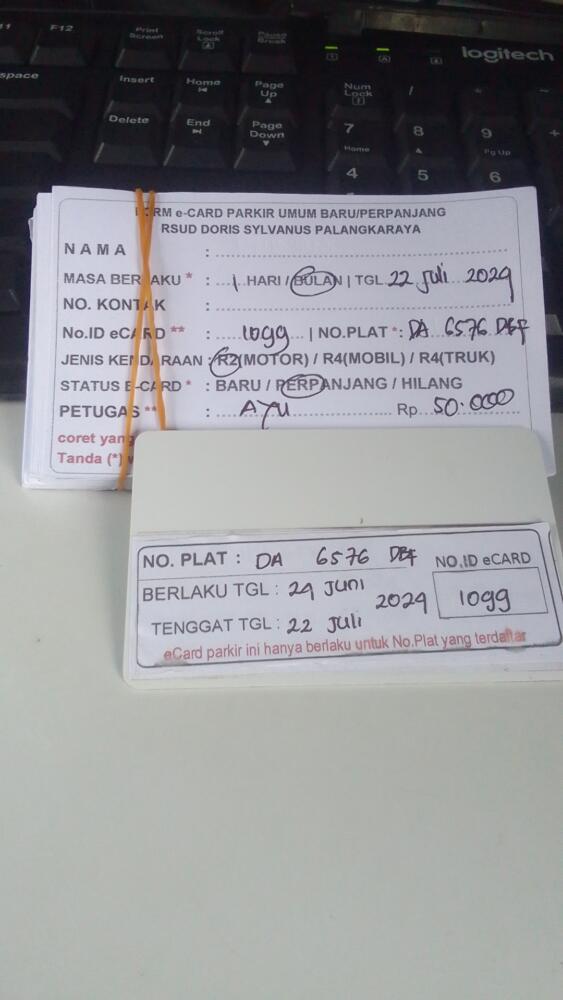 F12
Print Screen
Scroll Lock
Pause Break
logitech
space
Insert
Home
Page Up
Num Lock
/
Delete
End
Page Down
7 Home
8
9 Pg Up
+
4
5
6
FORM e-CARD PARKIR UMUM BARU/PERPANJANG
RSUD DORIS SYLVANUS PALANGKARAYA
N A M A :
MASA BERLAKU * : 1 HARI / BULAN | TGL 22 Juli 2024
NO. KONTAK :
No.ID eCARD ** : 1099 | NO.PLAT * : DA 6576 DBF
JENIS KENDARAAN : R2(MOTOR) / R4(MOBIL) / R4(TRUK)
STATUS E-CARD * : BARU / PERPANJANG / HILANG
PETUGAS ** : AYU Rp 50.000
coret yang
Tanda (*) w
NO. PLAT : DA 6576 DBF NO.ID eCARD
BERLAKU TGL : 24 Juni 2024 1099
TENGGAT TGL : 22 Juli
eCard parkir ini hanya berlaku untuk No.Plat yang terdaftar